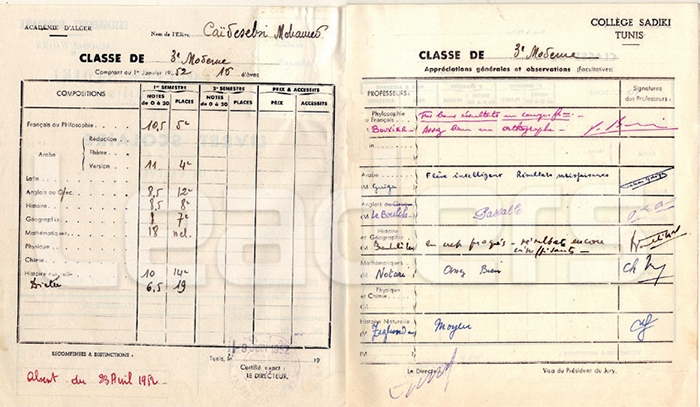 ACADÉMIE D'ALGER
Nom de l'Elève, Caïdesebsi Mohamed
CLASSE DE 3e Moderne
Comptant au 1er Janvier 1952 15 élèves
COMPOSITIONS
1er SEMESTRE
2e SEMESTRE
PRIX & ACCESSITS
NOTES de 0 à 20
PLACES
NOTES de 0 à 20
PLACES
PRIX
ACCESSITS
Français ou Philosophie 10,5 5e
Arabe
Rédaction
Thème
Version 11 4e
Latin
Anglais ou Grec 8,5 12e
Histoire 8,5 8e
Géographie 8 7e
Mathématiques 18
Physique
Chimie
Histoire naturelle 10 14e
Dictée 6,5 19
RECOMPENSES & DISTINCTIONS :
Absent du 23 Avril 1952
Tunis, 1952 19
Certifié exact :
LE DIRECTEUR,
COLLÈGE SADIKI
TUNIS
CLASSE DE 3e Moderne
Appréciations générales et observations (Facultatives)
PROFESSEURS
Signatures des Professeurs
Phylosophie
Français
Bouvier
Très bons résultats en
Assez bien en orthographe
Arabe
Guiga
Elève intelligent Résultats satisfaisants
Anglais ou Grec
Passable
Histoire et Géographie
en net progrès - résultats encore
insuffisants
Mathématiques
Notari
Assez Bien
Physique et Chimie
Histoire Naturelle
Moyen
Le Directeur,
Vice du Président du Jury.
Leaders